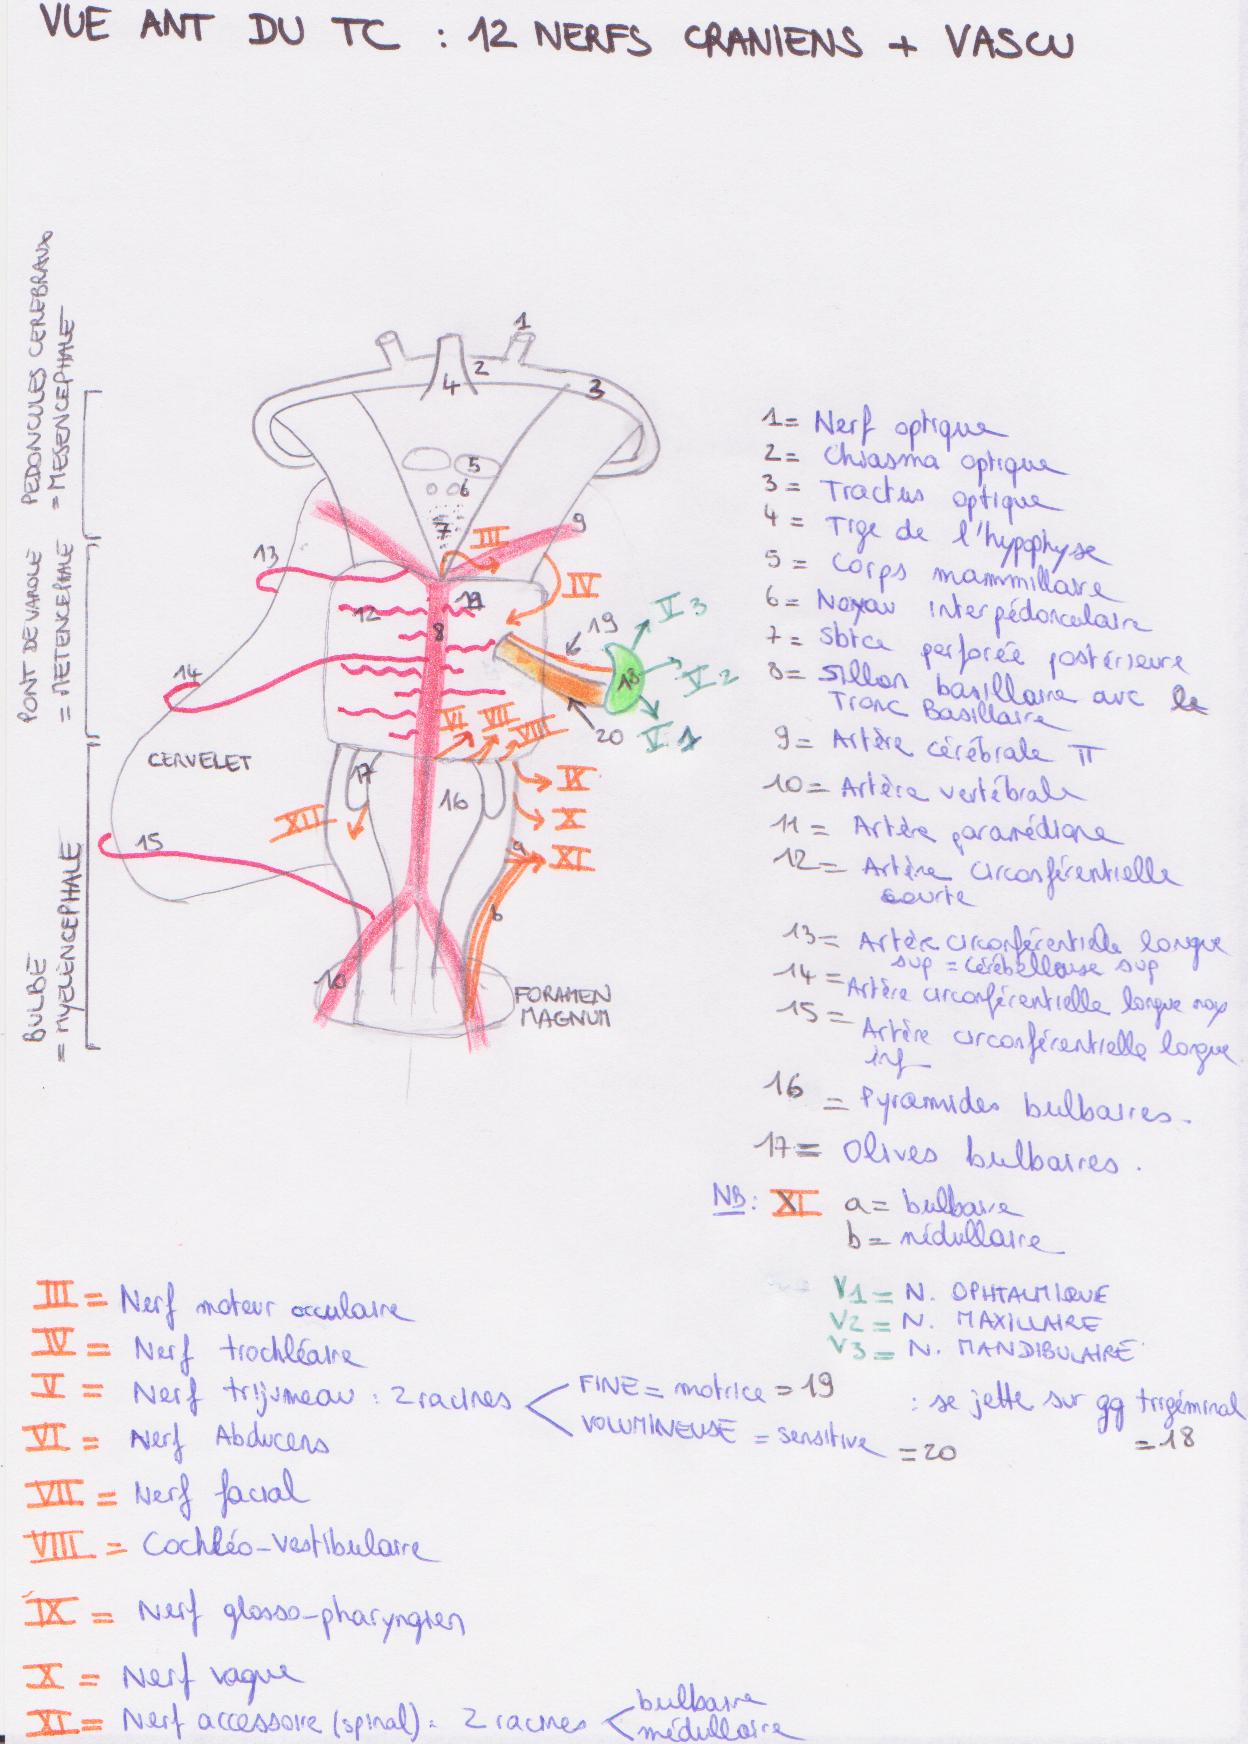 VUE ANT DU TC : 12 NERFS CRANIENS + VASCU
PEDONCULES CEREBRAUX
= MESENCEPHALE
PONT DE VAROLE
= METENCEPHALE
BULBE
= MYELENCEPHALE
1
2
4
3
5
6
7
9
III
13
IV
12
11
8
19
V3
14
18
V2
VI
VII
VIII
20
V1
CERVELET
17
16
IX
XII
X
15
a
XI
b
10
FORAMEN
MAGNUM
1= Nerf optique
2= Chiasma optique
3= Tractus optique
4= Tige de l'hypophyse
5= Corps mammillaire
6= Noyau interpédonculaire
7= Sbtce perforée postérieure
8= Sillon basillaire avc le
Tronc Basillaire
9= Artère cérébrale II
10= Artère vertébrale
11= Artère paramédiane
12= Artère circonférentielle
courte
13= Artère circonférentielle longue
sup = cérébelleuse sup
14= Artère circonférentielle longue moy
15= Artère circonférentielle longue
inf
16= Pyramides bulbaires.
17= Olives bulbaires.
NB: XI a= bulbaire
b= médullaire
V1= N. OPHTALMIQUE
V2= N. MAXILLAIRE
V3= N. MANDIBULAIRE
III= Nerf moteur occulaire
IV= Nerf trochléaire
V= Nerf trijumeau : 2 racines FINE= motrice = 19 : se jette sur gg trigéminal
VOLUMINEUSE = sensitive = 20 =18
VI= Nerf Abducens
VII= Nerf facial
VIII= Cochléo-vestibulaire
IX= Nerf glosso-pharyngien
X= Nerf vague
XI= Nerf accessoire (spinal): 2 racines bulbaire
médullaire